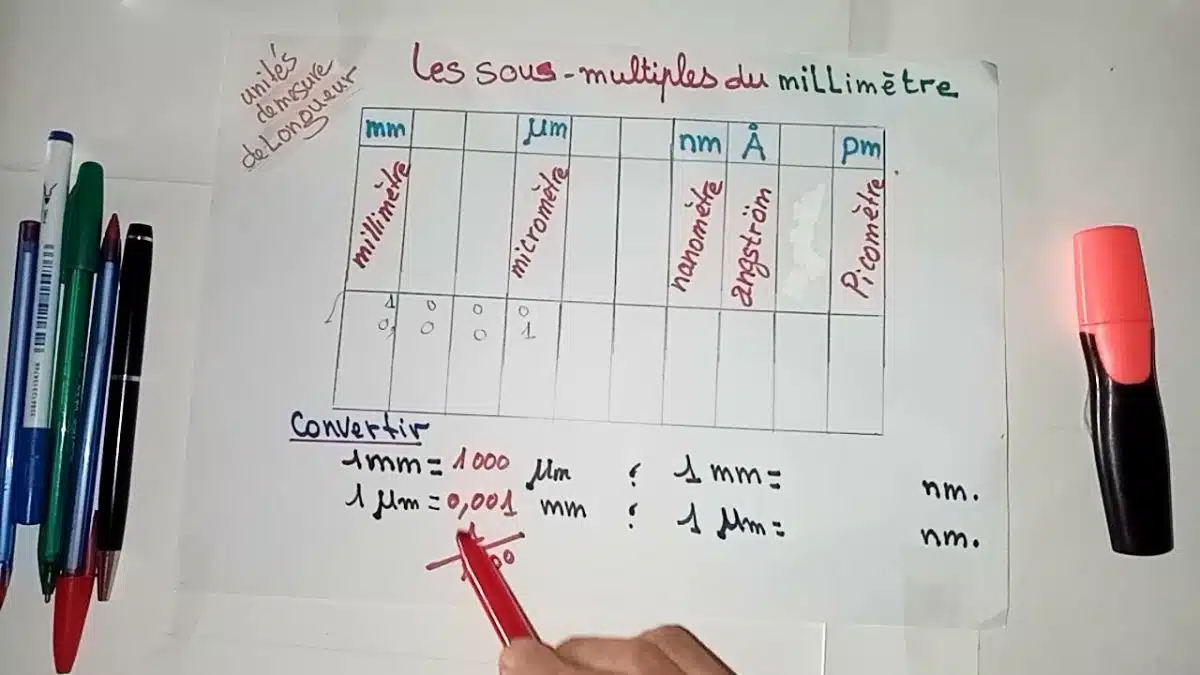 unités
de mesure
de Longueur
Les sous-multiples du millimètre
mm μm nm Å pm
millimètre micromètre nanomètre angström Picomètre
1 0 0 0
0, 0 0 1
Convertir
1 mm = 1000 μm ; 1 mm = nm.
1 μm = 0,001 mm ; 1 μm = nm.
1